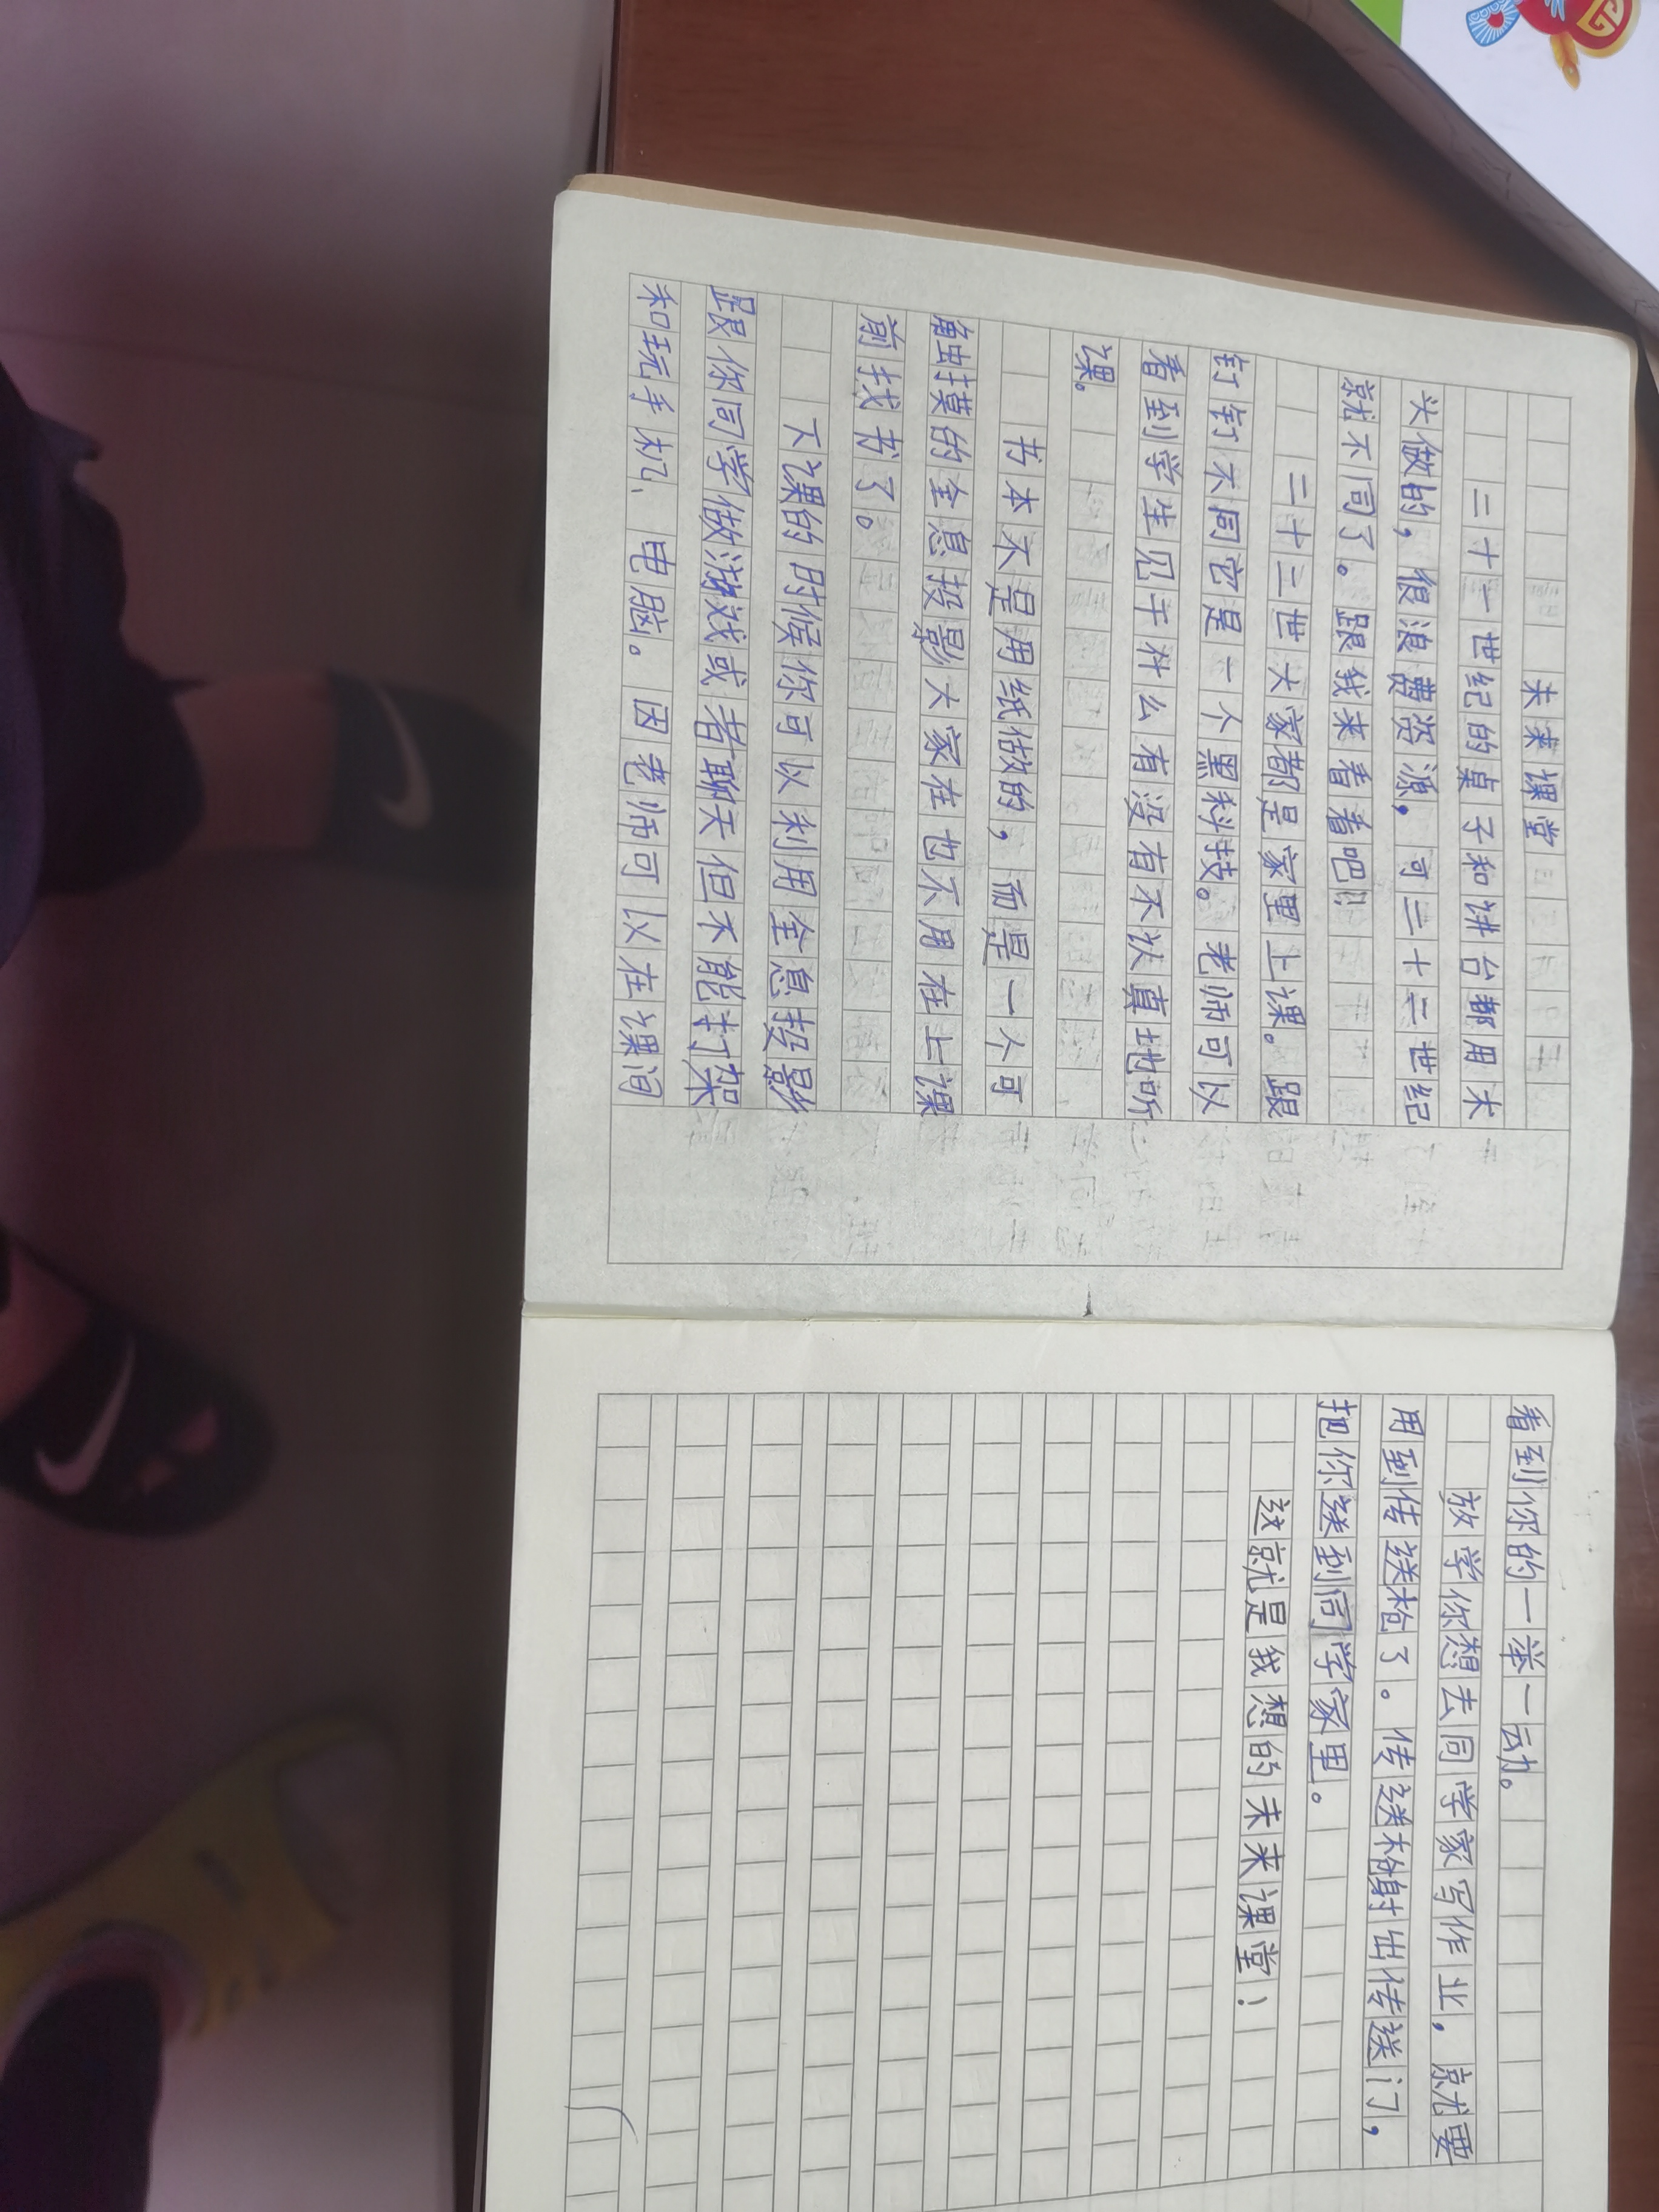 未来课堂
二十一世纪的桌子和讲台都用木
头做的，很浪费资源，可二十二世纪
就不同了。跟我来看看吧！
二十二世大家都是家里上课。跟
钉钉不同它是一个黑科技。老师可以
看到学生见干什么有没有不认真地听
课。
书本不是用纸做的，而是一个可
触摸的全息投影大家在也不用在上课
前找书了。
下课的时候你可以利用全息投影
跟你同学做游戏或者聊天但不能打架
和玩手机、电脑。因老师可以在课间
看到你的一举一动。
放学你想去同学家写作业，就要
用到传送枪了。传送枪射出传送门，
把你送到同学家里。
这就是我想的未来课堂！